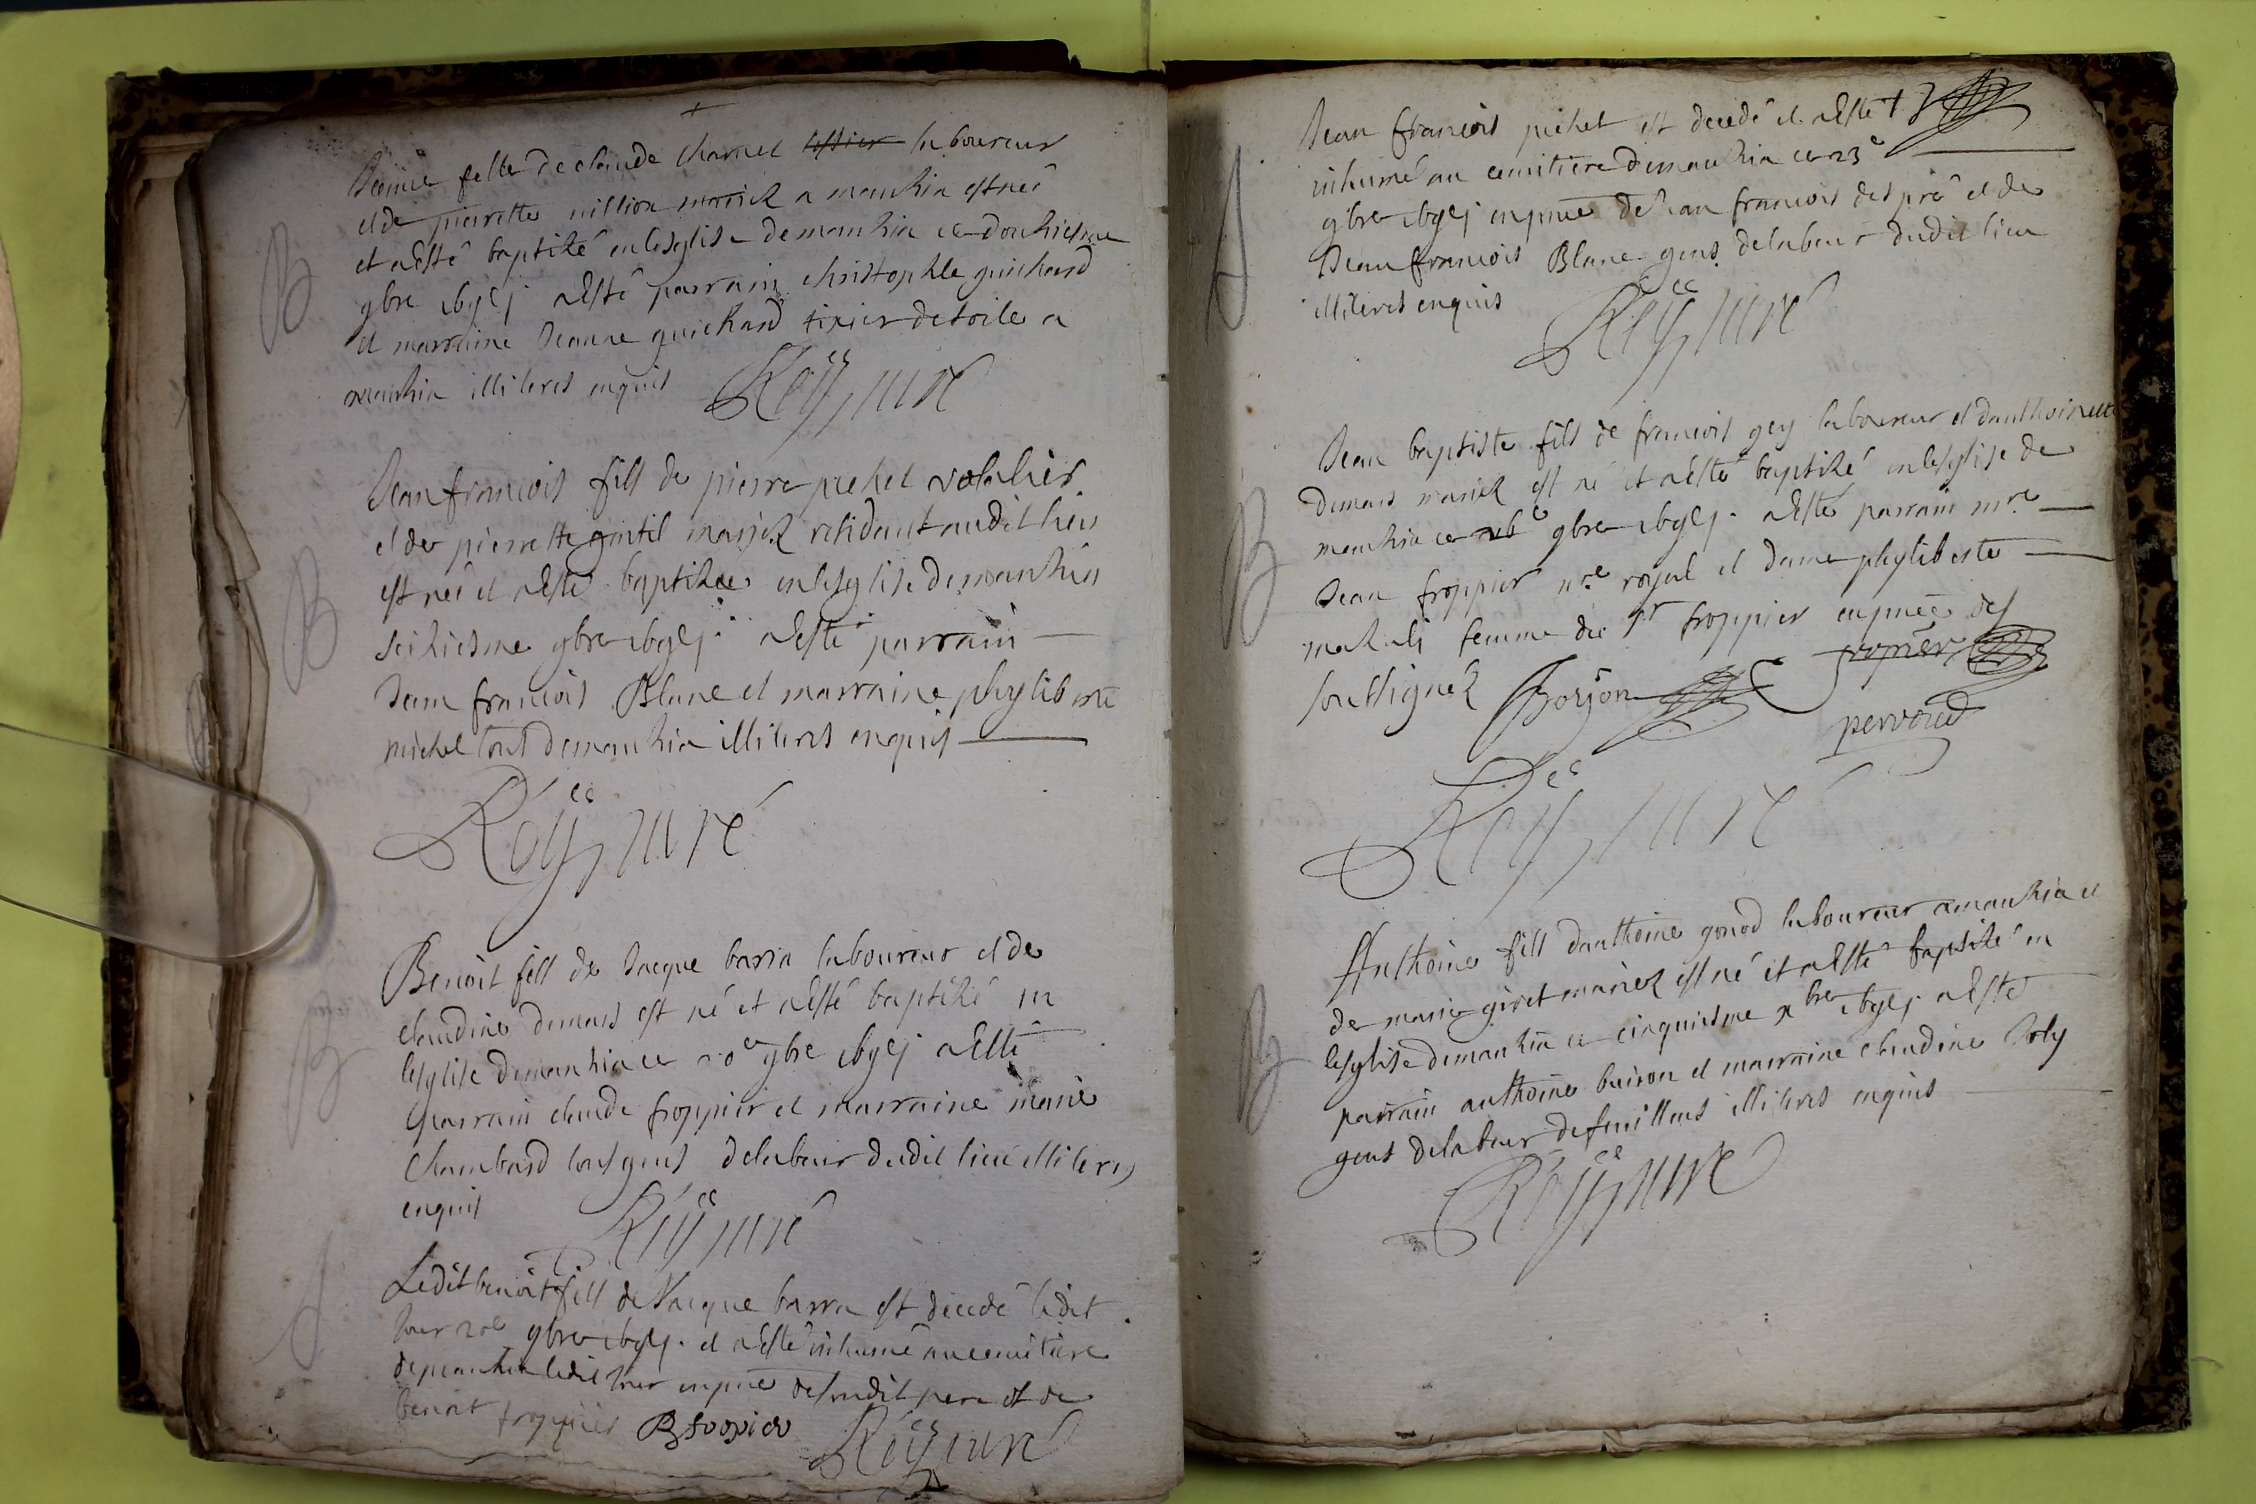 B
fille de claude Charnel tissier laboureur
et de pierrette million mariez a manzia est née
et aesté baptizé en lesglise de manzia ce douziesme
9bre aesté parrain christophle guichard
et marraine Jeanne guichard tixier de toile a
manzia illiteres enquis Reÿ curé
B
Jean francois fils de pierre pichet
et de pierrette gentil mariez residant audit lieu
est né et aesté baptizee en lesglise de manzia
seiziesme 9bre aesté parrain
Jean francois Blanc et marraine phyliberte
michel tous de manzia illiteres enquis
Reÿ curé
B
Benoit fils de Jacque barra laboureur et de
claudine dimars est né et aesté baptizé en
lesglise de manzia ce 20e 9bre aesté
parrain claude froppier et marraine marie
Chambard tous gens de labeur dudit lieu illiteres
enquis Reÿ curé
Ledit benoit fils de Jacque barra est decedé ledit
Jour 20e 9bre et aesté inhumé au cemitiere
de manzia ledit Jour en pnce de sondit pere et de
benoit froppier B froppier Reÿ curé
Jean francois pichet est decedé et aesté
inhumé au cemitiere de manzia ce 23e
9bre en pnce de Jean francois despré et de
Jean francois Blanc gens de labeur dudit lieu
illiteres enquis Reÿ curé
B
Jean baptiste fils de francois gey laboureur et danthoinette
dimars mariez est né et aesté baptizé en lesglise de
manzia ce 9bre aesté parrain mre
Jean froppier nre royal et dame phyliberte
femme du sr froppier en pnce des
soubsignez Borjon fropier
pervoud
Reÿ curé
B
Anthoine fils danthoine gonod laboureur a manzia et
de marie giret mariez est né et aesté baptizé en
lesglise de manzia ce cinquiesme xbre aesté
parrain anthoine buiron et marraine claudine Joly
gens de labeur de feuillens illiteres enquis
Reÿ curé